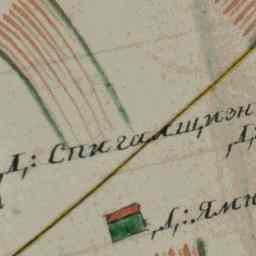 Д: Спигалщизн
Д:
Д: Ямн